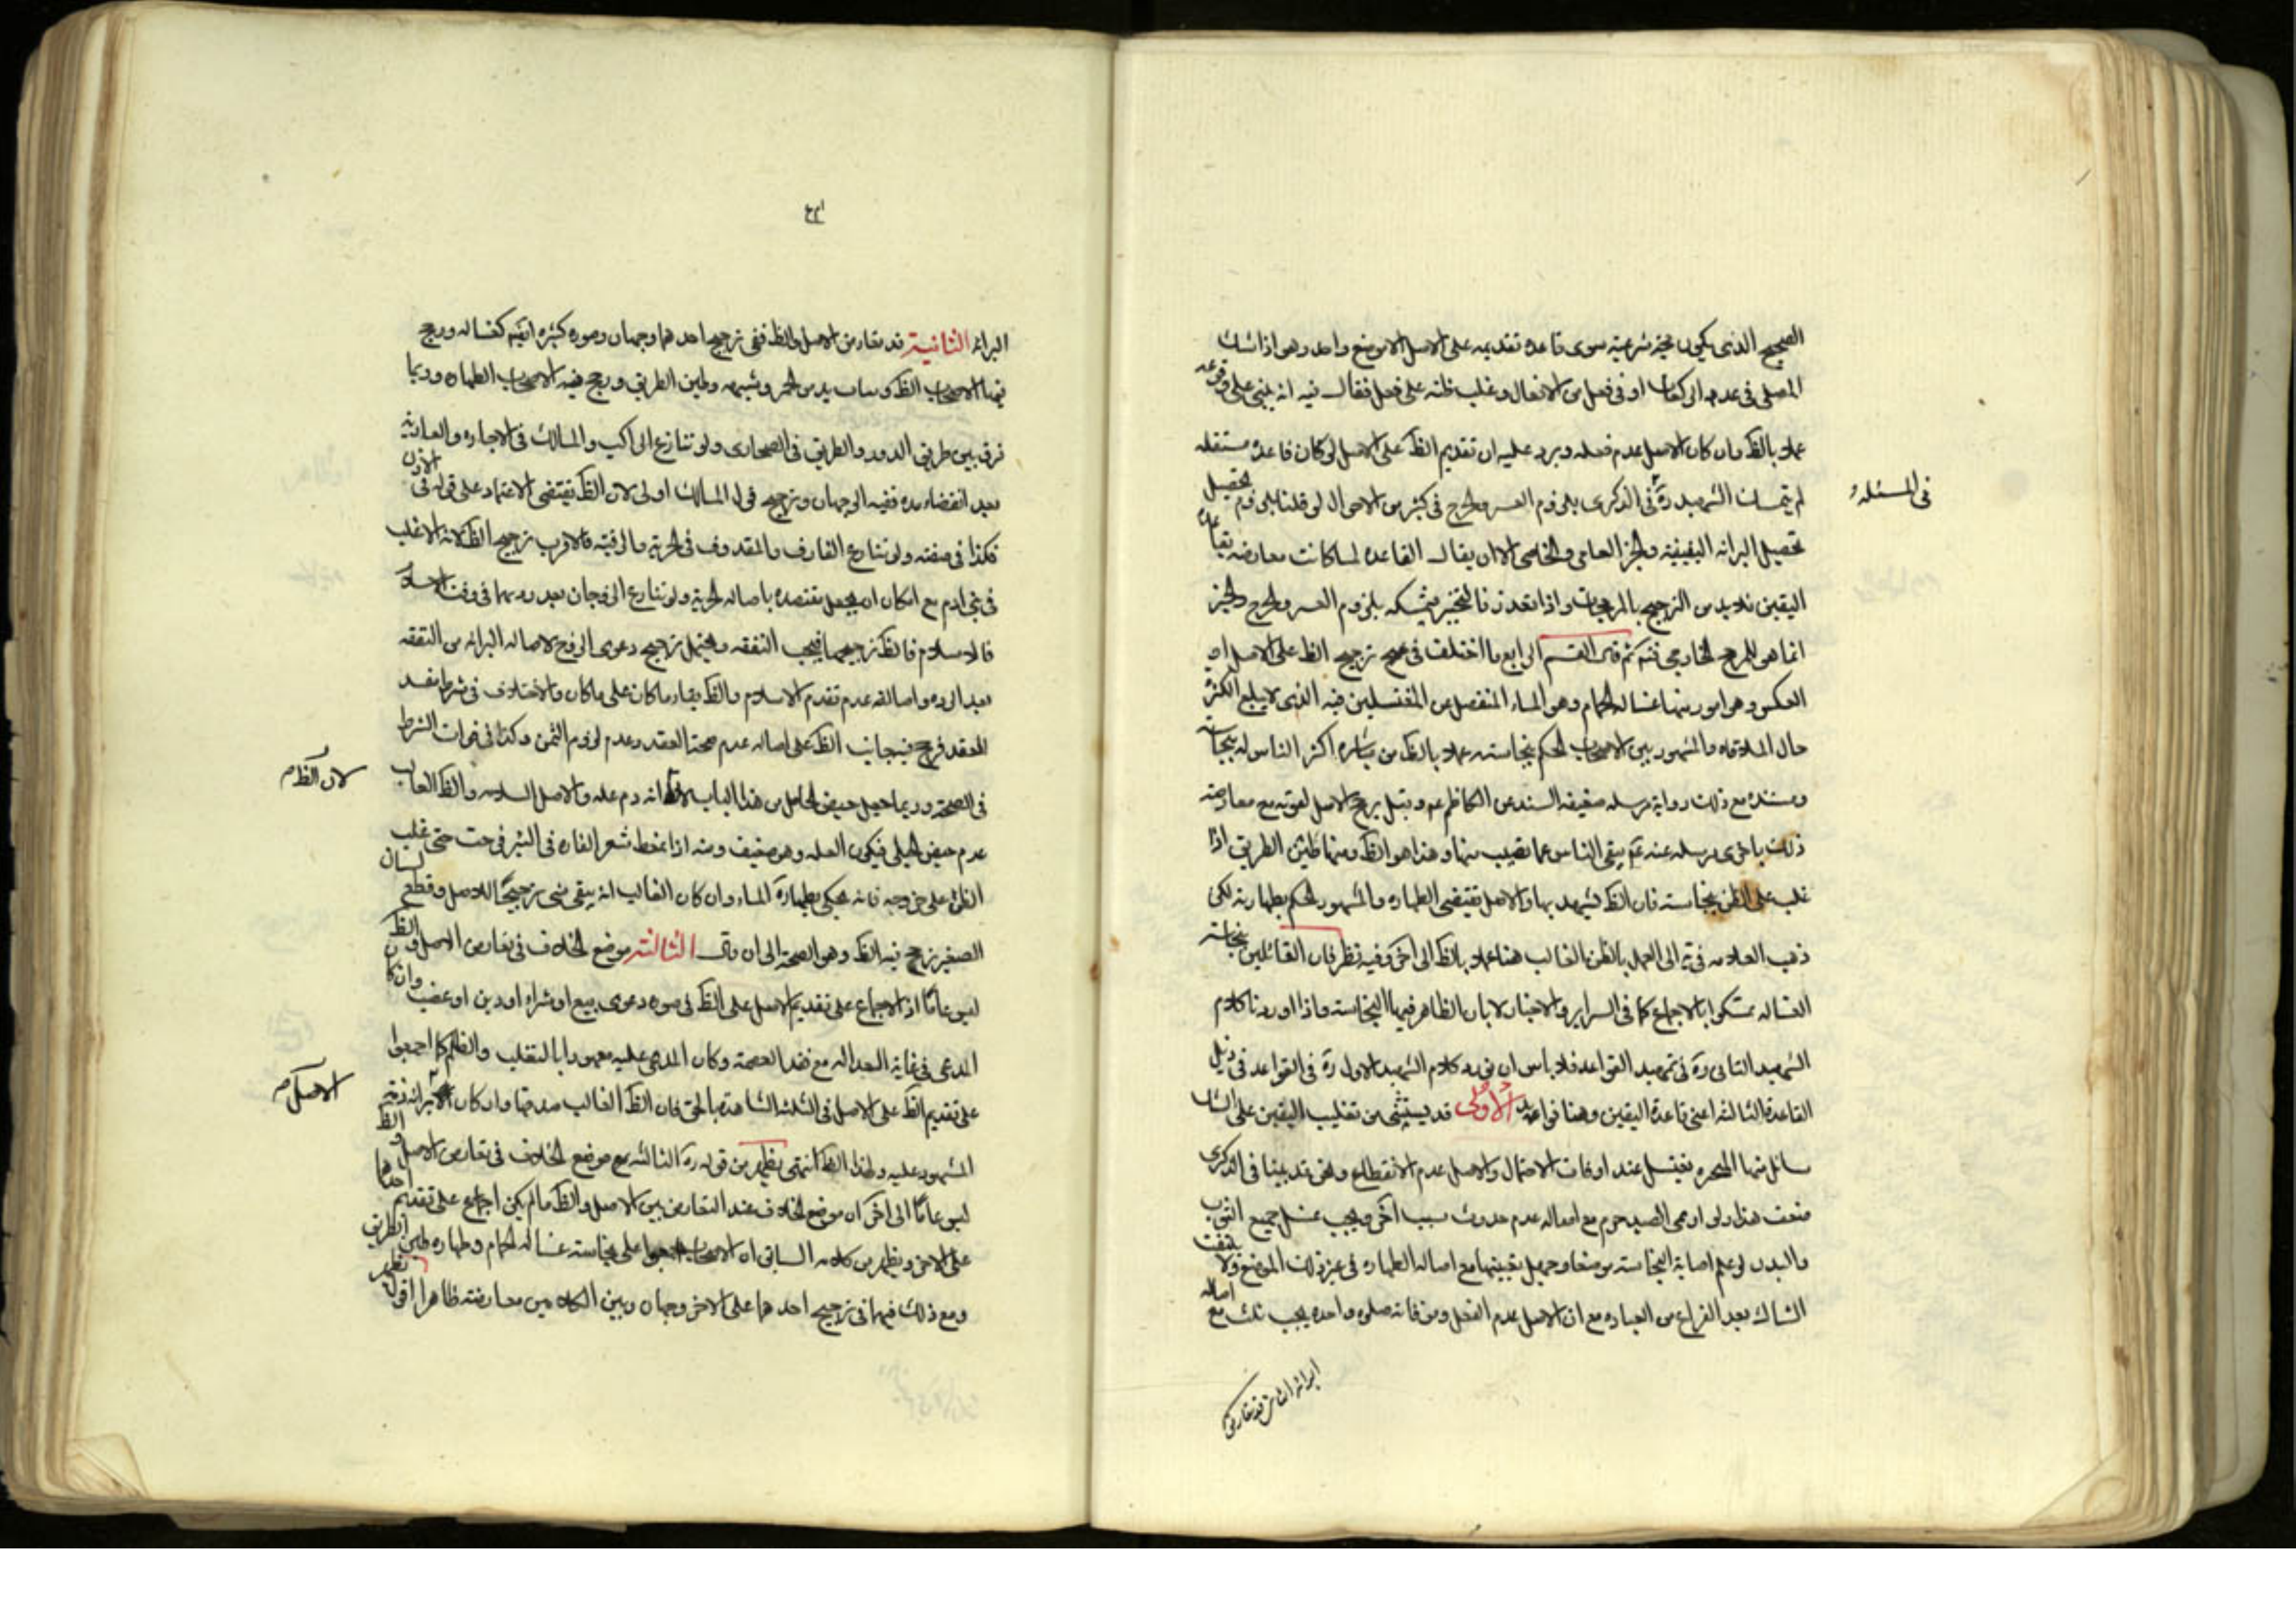 الصحيح الذى يكون حجة شرعية سوى قاعدة تقديمه على الاصل الا موضع واحد وهو اذا شك
المصلى فى عدد الركعات او فى فعل من الافعال وغلب ظنه على فعل فقال فيه انه يبنى على وقوعه
عملا بالظ وان كان الاصل عدم فعله ويرد عليه ان تقديم الظ على الاصل لو كان قاعدة مستقلة
لم يتمسك الشهيد ره فى الذكرى بلزوم العسر والحرج فى كثير من الاحوال لو قلنا بلزوم تحصيل
فى المسئلة
تحصيل البرائة اليقينية والخبر العامى والخاصى الا ان يقال القاعدة لما كانت معارضة بقاعدة
اليقين فلابد من الترجيح بالمرجحات واذا تعذر فالتخيير فتمسكه بلزوم العسر والحرج والخبر
انما هو للمرجح الخارجى فتم ثم قال القسم الرابع ما اختلف فى ترجيح الظ على الاصل او
العكس وهو امور منها غسالة الحمام وهو الماء المنفصل من المغتسلين فيه الذى لا يبلغ الكثرة
حال الملاقاة والمشهور بين الاصحاب الحكم بنجاسته عملا بالظ من مباشرة اكثر الناس له بنجاسة
ومستنده مع ذلك رواية مرسلة ضعيفة السند عن الكاظم ع وقيل يرجح الاصل لقوته مع معارضة
ذلك باخرى مرسلة عنه ع بنفى الباس عما تصيب منها وهذا هو الظ ومنها طين الطريق اذا
غلب على الظن نجاسته فان الظ يشهد بها والاصل يقتضى الطهارة والمشهور الحكم بطهارته لكن
ذهب العلامة فى يه الى العمل بالظن الغالب هنا عملا بالظ الى اخره وفيه نظر فان القائلين بنجاسة
الغسالة تمسكوا بالاجماع كما فى السراير والاخبار لا بان الظاهر فيها النجاسة واذا اوردنا كلام
الشهيد الثانى ره فى تمهيد القواعد فلا باس ان نورد كلام الشهيد الاول ره فى القواعد فى ذيل
القاعدة الثالثة اعنى قاعدة اليقين وهنا فوائد الاولى قد يستثنى من تغليب اليقين على الشك
مسائل منها المتحيرة تغتسل عند اوقات الاحتمال والاصل عدم الانقطاع ونحن قد بينا فى الذكرى
ضعف هذا ولو ادمى الصيد حرم مع اصالة عدم حدوث سبب اخر ويجب غسل جميع الثوب
والبدن لو علم اصابة النجاسة موضعا وجهل تعيينها مع اصالة الطهارة فى غير ذلك الموضع ولا يلتفت
الشاك بعد الفراغ من العبادة مع ان الاصل عدم الفعل ومن فاتته صلوة واحدة يجب ثلث مع اصالة
البرائة الثانية قد يتعارض
البرائة الثانية قد يتعارض الاصل والظ ففى ترجيح احدهما وجهان وصوره كثيرة كغسالة ورجح
فيها الاصحاب الظ وطين الطريق ورجح فيه الاصحاب الطهارة وربما
فرق بين طريق الدور والطريق فى الصحارى ولو تنازع الراكب والمالك فى الاجارة والعارية
بعد انقضاء مدة ففيه الوجهان وترجيح قول المالك اولى لان الظ يقتضى الاعتماد على قوله فى الاذن
فكذا فى صفته ولو تنازع القاذف والمقذوف فى الحرية والرقية فالاقرب ترجيح الظ لانه الاغلب
فى بنى ادم مع امكان ان يجعل معتضدة باصالة الحرية ولو تنازع الزوجان بعد ردتهما فى وقت
فالظ ترجيحهما فيجب النفقة ويحتمل ترجيح دعوى الزوج لاصالة البرائة من النفقة
بعد الردة واصالة عدم تقدم الاسلام والظ بقاء ما كان على ما كان والاختلاف فى شرط مفسد
للعقد فرجح فيه جانب الظ على اصالة عدم صحة العقد وعدم لزوم الثمن وكذا فى فوات الشرط
لان الظ م
فى الصحة وربما جعل حيض الحامل من هذا الباب انه دم علة والاصل السلامة والظ الغالب
عدم حيض الحبلى فيكون العلة وهو ضعيف ومنه اذا تمعط شعر الفارة فى البئر فنزحت حتى غلب
الظن على خروجه فانه يحكم بطهارة الماء وان كان الغالب انه يبقى شى ترجيحا للاصل وقطع لسان
الصغير ترجح فيه الظ وهو الصحة الى ان قال الثالثة موضع الخلاف فى تعارض الاصل والظ
ليس عاما اذ الاجماع على تقديم الاصل على الظ فى صورة دعوى بيع او شراء او دين او غصب وان كان
المدعى فى غاية العدالة مع فقد العصمة وكان المدعى عليه معهودا بالتغلب والظلم كما اجمعوا
الاصل م
على تقديم الظ على الاصل فى الثلثة الشاهدة بالحق فان الظ الغالب صدقها وان كان برائة ذمة
المشهود عليه وهذا الظ انتهى يظهر من قوله ره الثالثة مع موضع الخلاف فى تعارض الاصل والظ
ليس عاما الى اخره ان موضع الخلاف عند التعارض بين الاصل والظ ما لم يكن اجماع على تقديم احدهما
على الاخر ويظهر من كلامه السابق ان الاصحاب على نجاسة غسالة الحمام وطهارة طين الطريق
ومع ذلك فيهما فى ترجيح احدهما على الاخر وجهان وبين الكلامين معارضة ظاهرا اقول